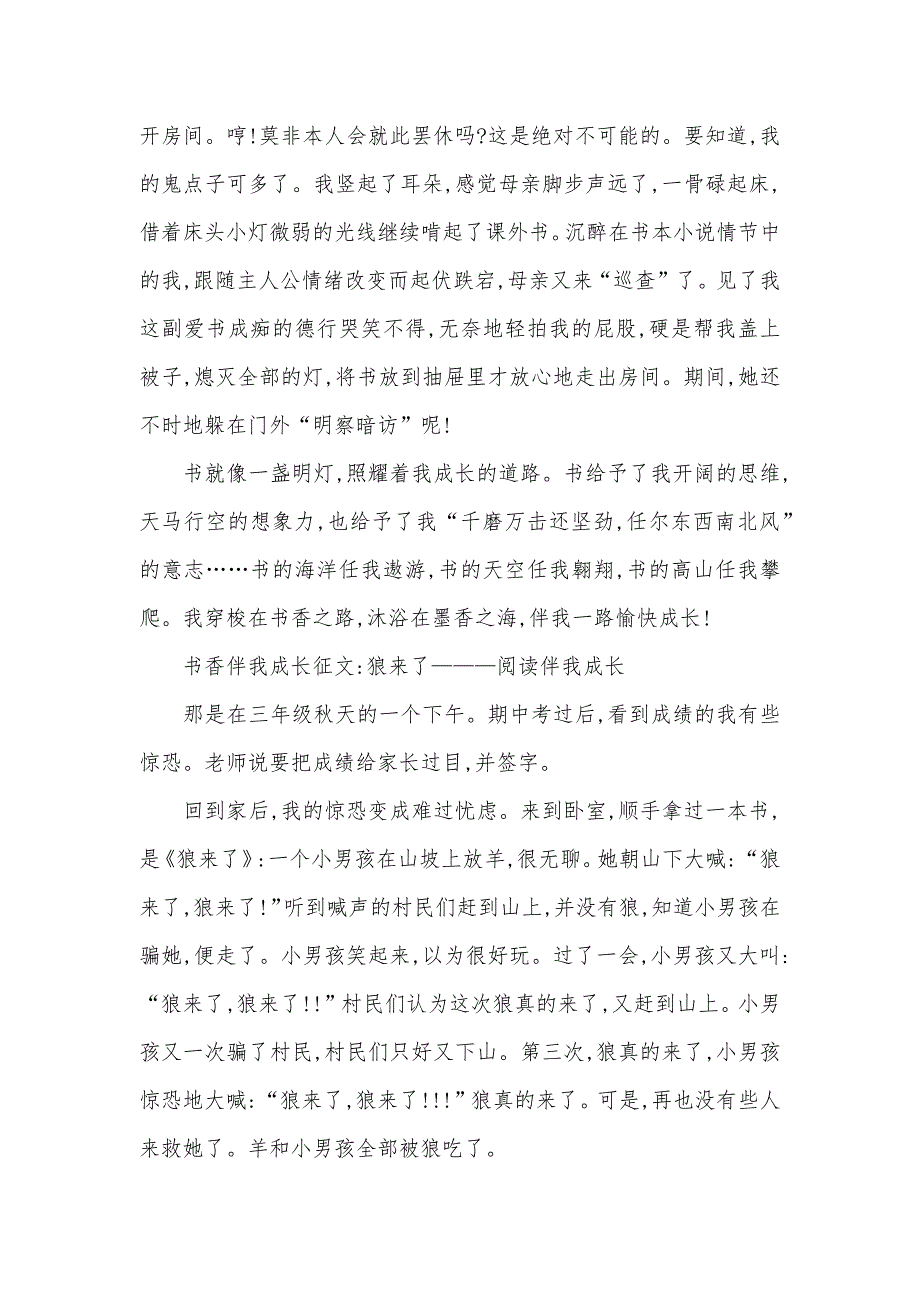 开房间。哼!莫非本人会就此罢休吗?这是绝对不可能的。要知道,我
的鬼点子可多了。我竖起了耳朵,感觉母亲脚步声远了,一骨碌起床,
借着床头小灯微弱的光线继续啃起了课外书。沉醉在书本小说情节中
的我,跟随主人公情绪改变而起伏跌宕,母亲又来“巡查”了。见了我
这副爱书成痴的德行哭笑不得,无奈地轻拍我的屁股,硬是帮我盖上
被子,熄灭全部的灯,将书放到抽屉里才放心地走出房间。期间,她还
不时地躲在门外“明察暗访”呢!
书就像一盏明灯,照耀着我成长的道路。书给予了我开阔的思维,
天马行空的想象力,也给予了我“千磨万击还坚劲,任尔东西南北风”
的意志……书的海洋任我遨游,书的天空任我翱翔,书的高山任我攀
爬。我穿梭在书香之路,沐浴在墨香之海,伴我一路愉快成长!
书香伴我成长征文:狼来了———阅读伴我成长
那是在三年级秋天的一个下午。期中考过后,看到成绩的我有些
惊恐。老师说要把成绩给家长过目,并签字。
回到家后,我的惊恐变成难过忧虑。来到卧室,顺手拿过一本书,
是《狼来了》:一个小男孩在山坡上放羊,很无聊。她朝山下大喊:“狼
来了,狼来了!”听到喊声的村民们赶到山上,并没有狼,知道小男孩在
骗她,便走了。小男孩笑起来,以为很好玩。过了一会,小男孩又大叫:
“狼来了,狼来了!!”村民们认为这次狼真的来了,又赶到山上。小男
孩又一次骗了村民,村民们只好又下山。第三次,狼真的来了,小男孩
惊恐地大喊:“狼来了,狼来了!!!”狼真的来了。可是,再也没有些人
来救她了。羊和小男孩全部被狼吃了。